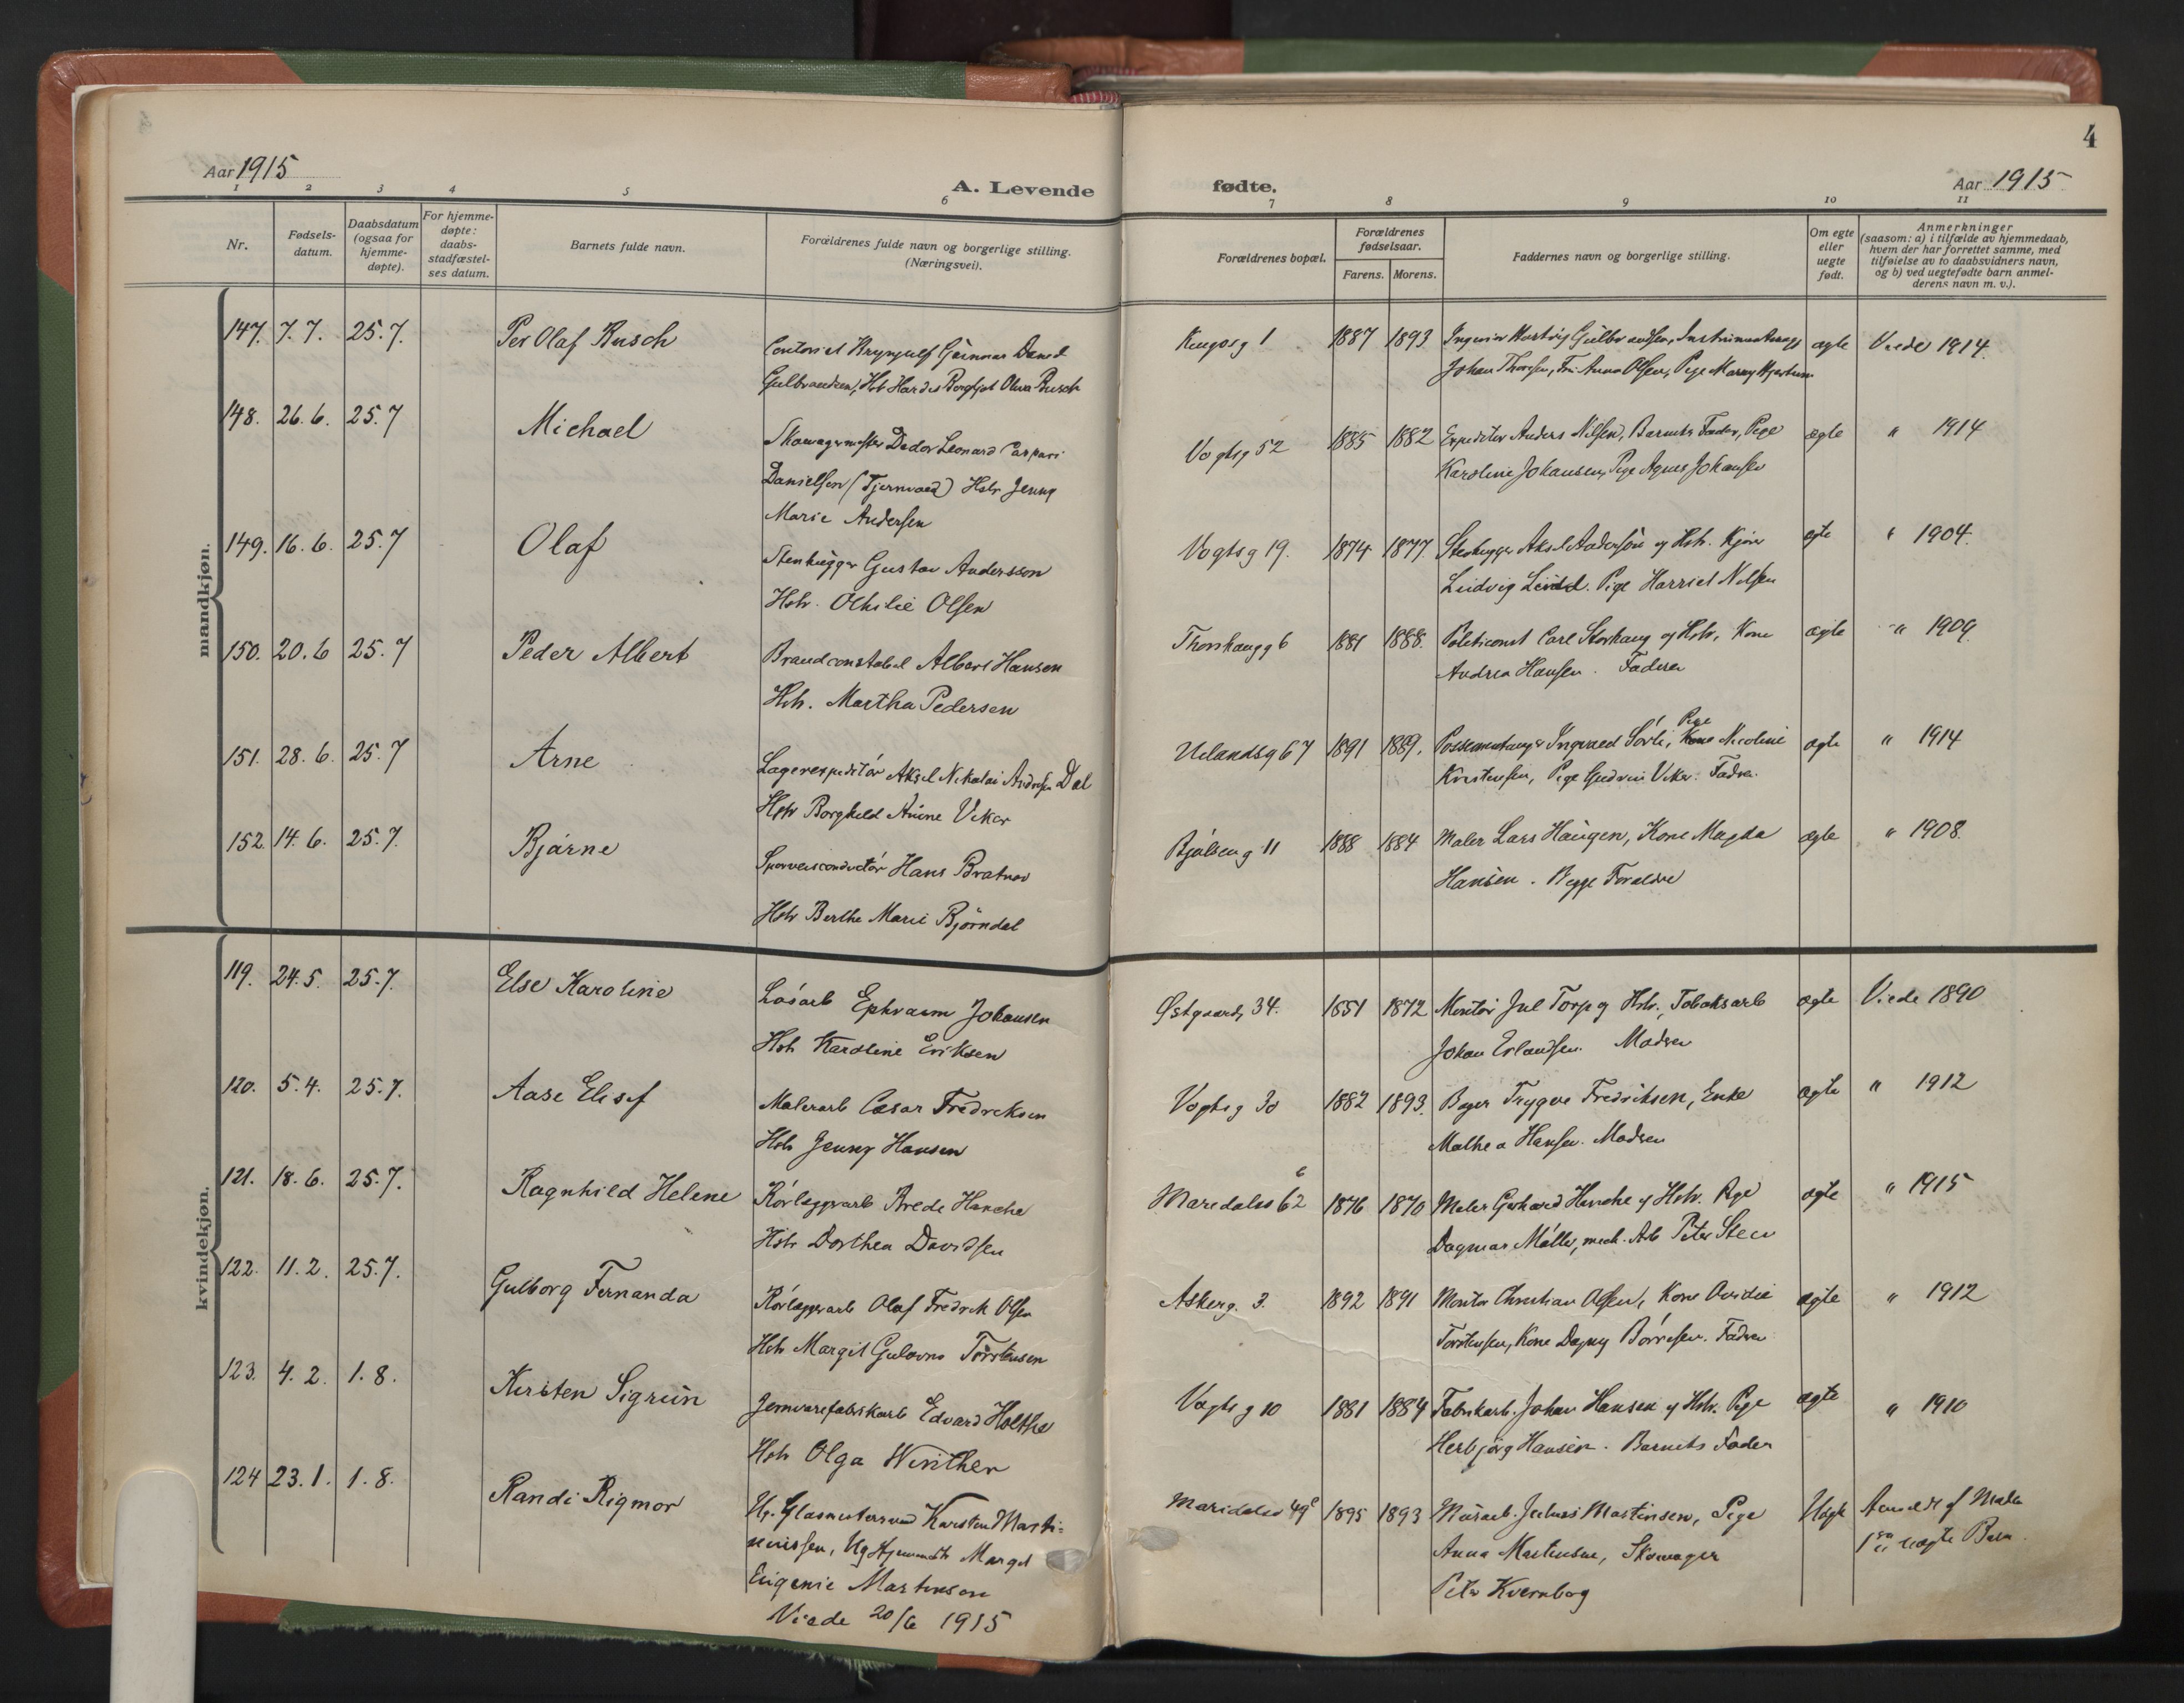 4
Aar 1915
A. Levende fødte.
Aar 1915
1 2 3 4 5 6 7 8 9 10 11
Nr.
Fødsels-
datum.
Daabsdatum
(ogsaa for
hjemme-
døpte).
For hjemme-
døpte:
daabs-
stadfæstel-
ses datum.
Barnets fulde navn.
Forældrenes fulde navn og borgerlige stilling.
(Næringsvei).
Forældrenes bopæl.
Forældrenes
fødselsaar.
Farens. Morens.
Faddernes navn og borgerlige stilling.
Om egte
eller
uegte
født.
Anmerkninger
(saasom: a) i tilfælde av hjemmedaab,
hvem der har forrettet samme, med
tilføielse av to daabsvidners navn,
og b) ved uegtefødte barn anmel-
derens navn m. v.).
mandkjøn.
147. 7.7. 25.7. Per Olaf Rusch
Gunnar
Gulbrandsen, Olava Rusch
1 1887 1893 Gulbrandsen,
Johan Thoresen, Anna Olsen, Pige ægte Viede 1914
148. 26.6. 25.7 Michael
Leonard
Danielsen (Tjernvaed) Hstr Jenny
Marie Andersen
Vogtsg 52 1885 1882 Expeditør Anders Nilsen, Barnets Fader, Pige
Karoline Johansen, Pige Agnes Johansen ægte " 1914
149. 16.6. 25.7 Olaf
Stenhugger Gustav Andersson
Hstr. Othilie Olsen
Vogtsg 19. 1874 1877. Stenhugger Aksel Andersson og Hstr.
Ludvig Pige Harriet Nilsen egte " 1904.
150. 20.6 25.7 Peder Albert
Brandconstabel Albert Hansen
Hstr. Martha Pedersen
Thorshaugg 6 1881 1888. Politiconst Carl Storhaug og Hstr, Kone
Andrea Hansen. Faderen ægte " 1909.
151. 28.6. 25.7 Arne
Lagerexpeditør Aksel Nikolai Andresen Dal
Hstr Borghild Anine Veker
Uelandsg 67 1891 1889. Ingvald Sørli, Pige Nicoline
Kristensen, Pige Gudrun Veker. Fadren. ægte " 1914
152. 14.6. 25.7. Bjarne
Sporveisconductør Hans Bratner
Hstr Berthe Marie Bjørndal
Bjølseng 11 1888 1884 Maler Lars Haugen, Kone Magda
Hansen. Begge Forældre ægte " 1908.
kvindekjøn.
119. 24.5. 25.7. Else Karoline
Løsarb Ephraim Johansen
Hstr Karoline Eriksen
Østgaardsg 34. 1851 1872 Montør Jul Torp og Hstr., Tobaksarb
Johan Erlandsen. Modren ægte Viede 1890
120. 5.4. 25.7. Aase Elisef
Malerarb Cæsar Fredreksen
Hstr Jenny Hansen
Vogtsg 30 1882 1893. Bager Trygve Fredriksen, Enke
Mathea Hansen. Modren ægte " 1912
121. 18.6. 25.7. Ragnhild Helene
Rørlæggerarb Arede Hanche
Hstr Dorthea Davidsen
Maredalsv 62 6 1876 1870 Maler Gerhard Hanche og Hstr. Pige
Dagmar Møller, mech. Arb Peter Steen ægte " 1915
122. 11.2. 25.7. Gulborg Fernanda
Rørlæggerarb Olaf Fredrik Olsen
Hstr Margit Gulovna Torstensen
Askerg. 3. 1892 1891 Montør Christian Olsen, Kone Ovidie
Torstensen, Kone Dagny Børresen. Fadren ægte " 1912
123. 4.2. 1.8. Kirsten Sigrun
Jernvarefabrikarb Edvard Holthe
Hstr Olga Winther
Vogtsg 10 1881 1884 Fabrikarb. Johan Hansen og Hstr. Pige
Herbjørg Hansen. Barnets Fader ægte " 1910
124 23.1. 1.8. Randi Rigmor
Ug. Karsten Marti-
Ug Margit
Eugenie Martinsen
Viede 20/6 1915
Maridalsv 49 c 1895 1893 Murarb. Julius Martinsen, Pige
Anna Martinsen, Skomager
Peter Kvernborg Uægte Anmeldt af Moder
1ste uægte Barn.